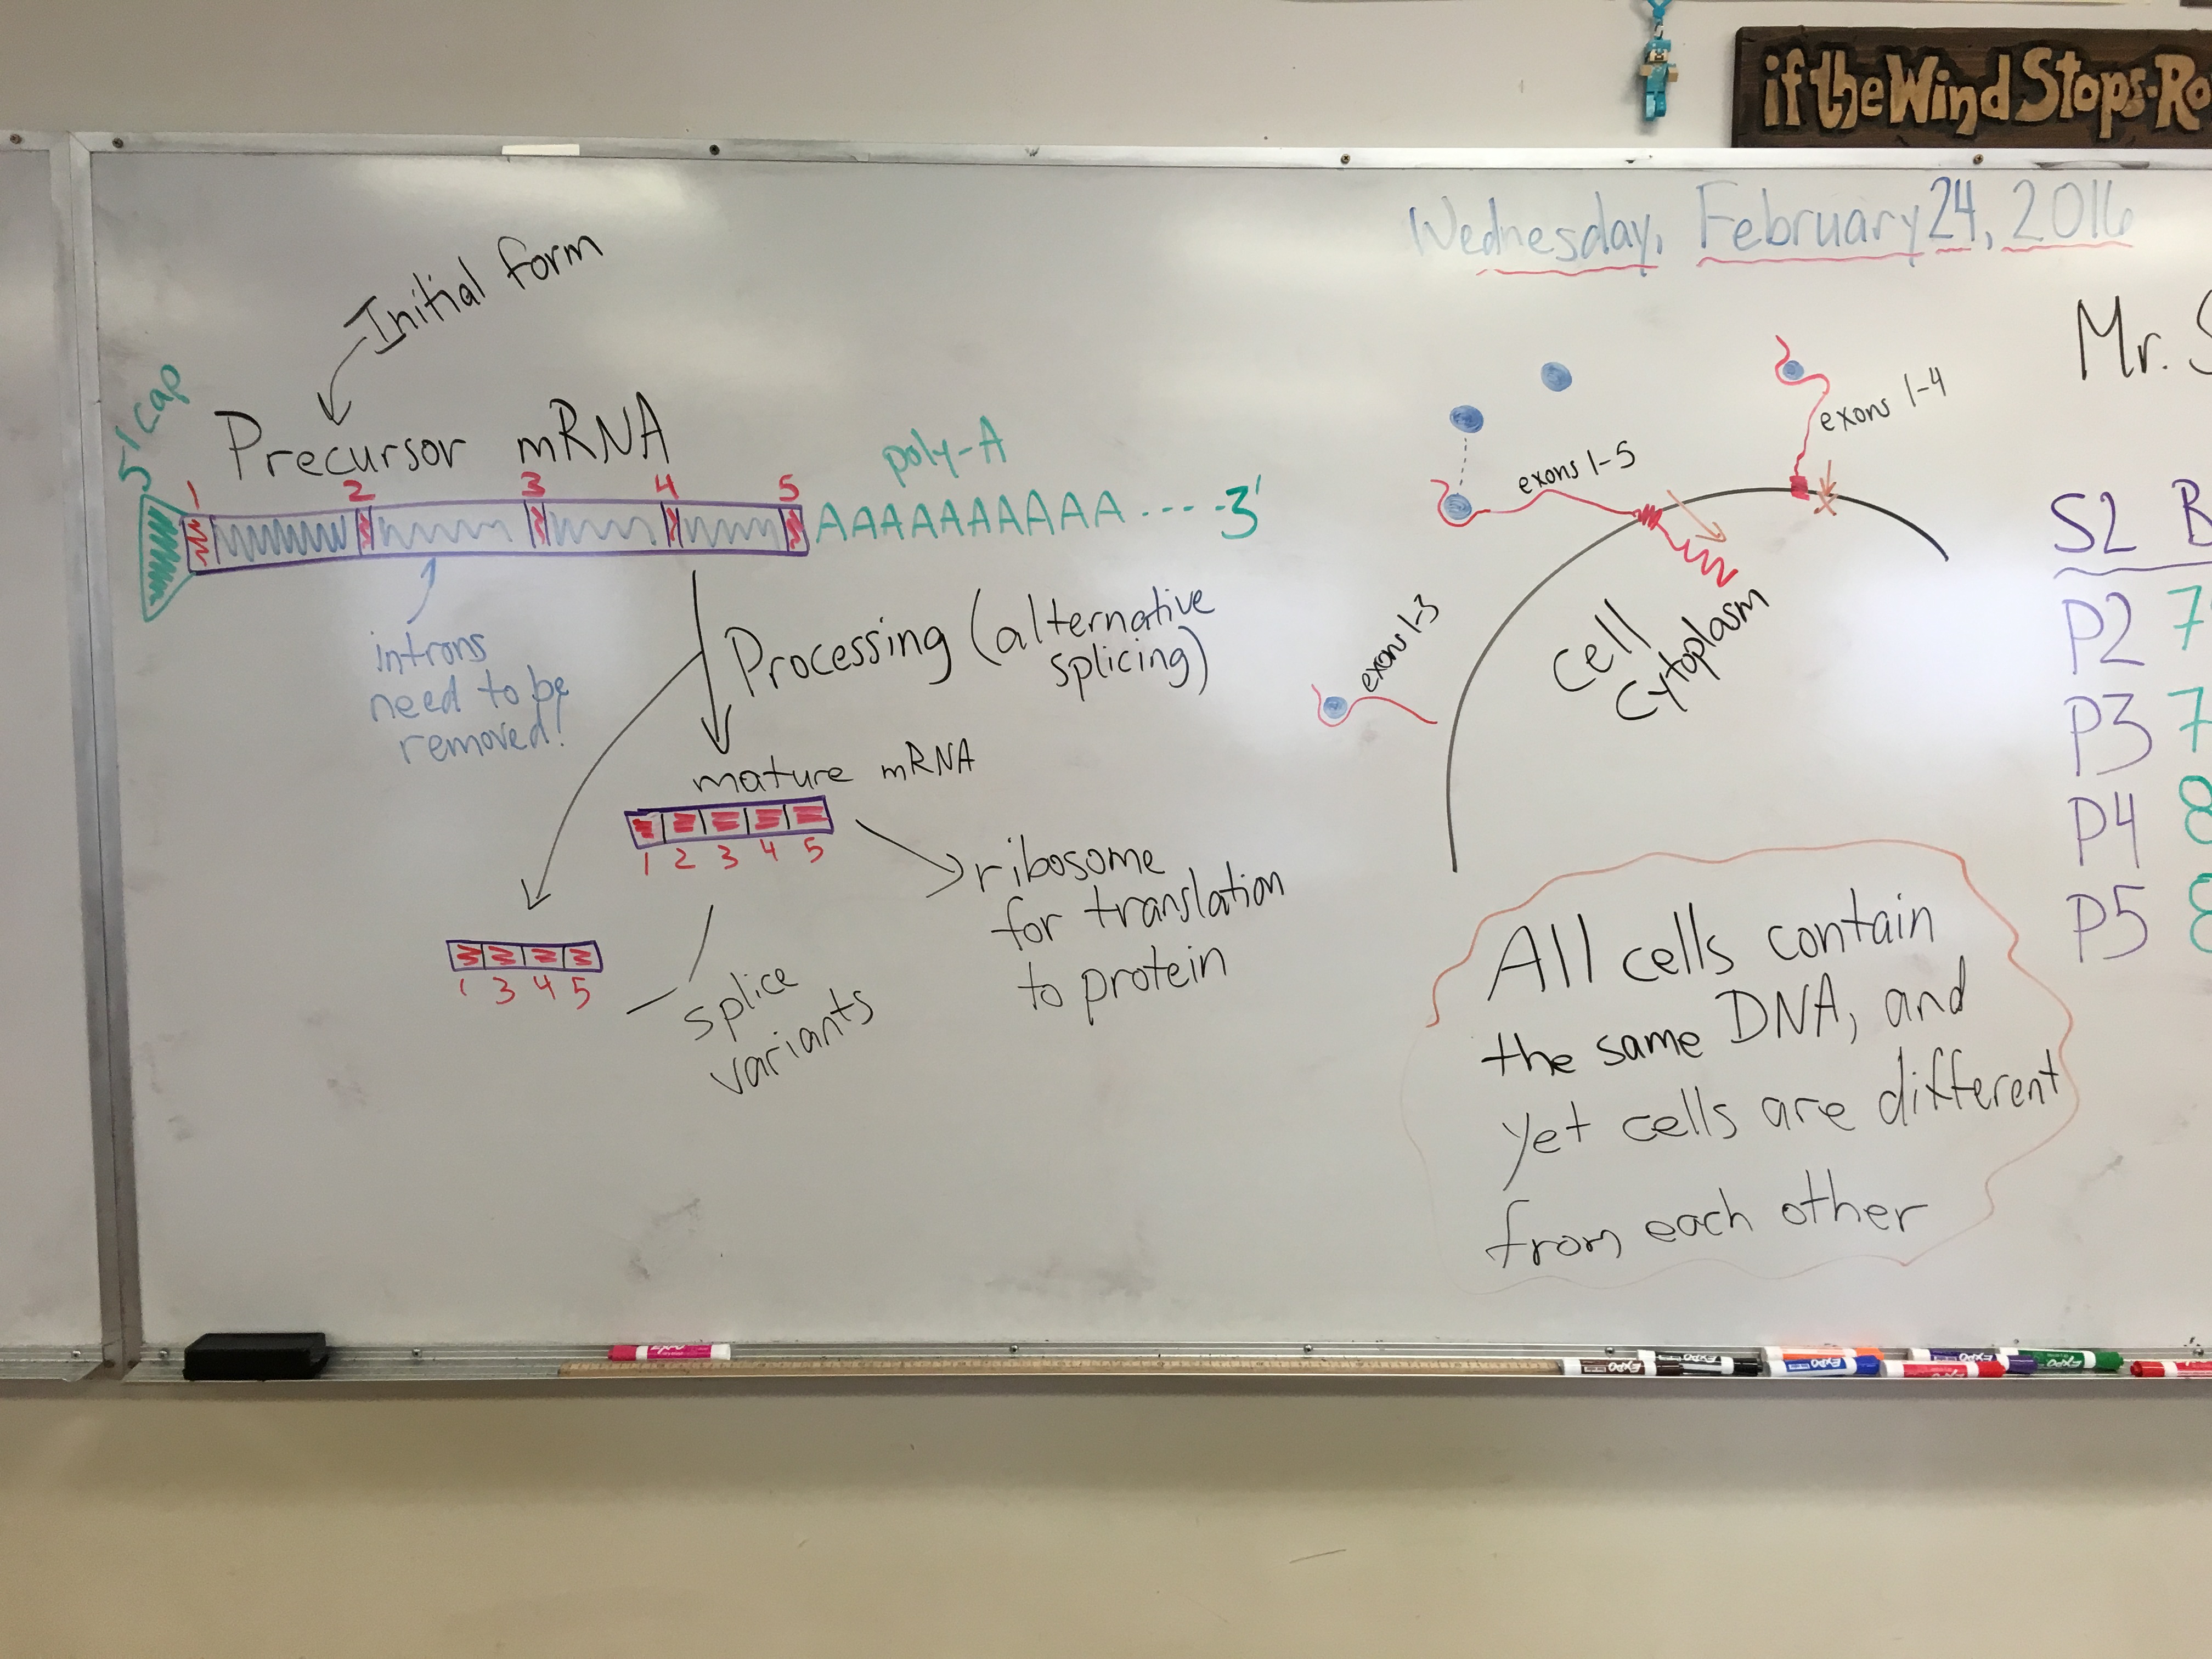 if the Wind Stops-Ro
Wednesday, February 24, 2016
Initial form
5' cap
Precursor mRNA
poly-A
1 2 3 4 5
AAAAAAAAAA ---- 3'
introns
need to be
removed!
Processing (alternative
splicing)
mature mRNA
1 2 3 4 5
ribosome
for translation
to protein
1 3 4 5
splice
variants
exons 1-5
exons 1-4
exons 1-3
Cell
Cytoplasm
All cells contain
the same DNA, and
yet cells are different
from each other
Mr. S
S2 B
P2 7
P3 7
P4 8
P5 8
EXPO
EXPO
EXPO
EXPO
EXPO